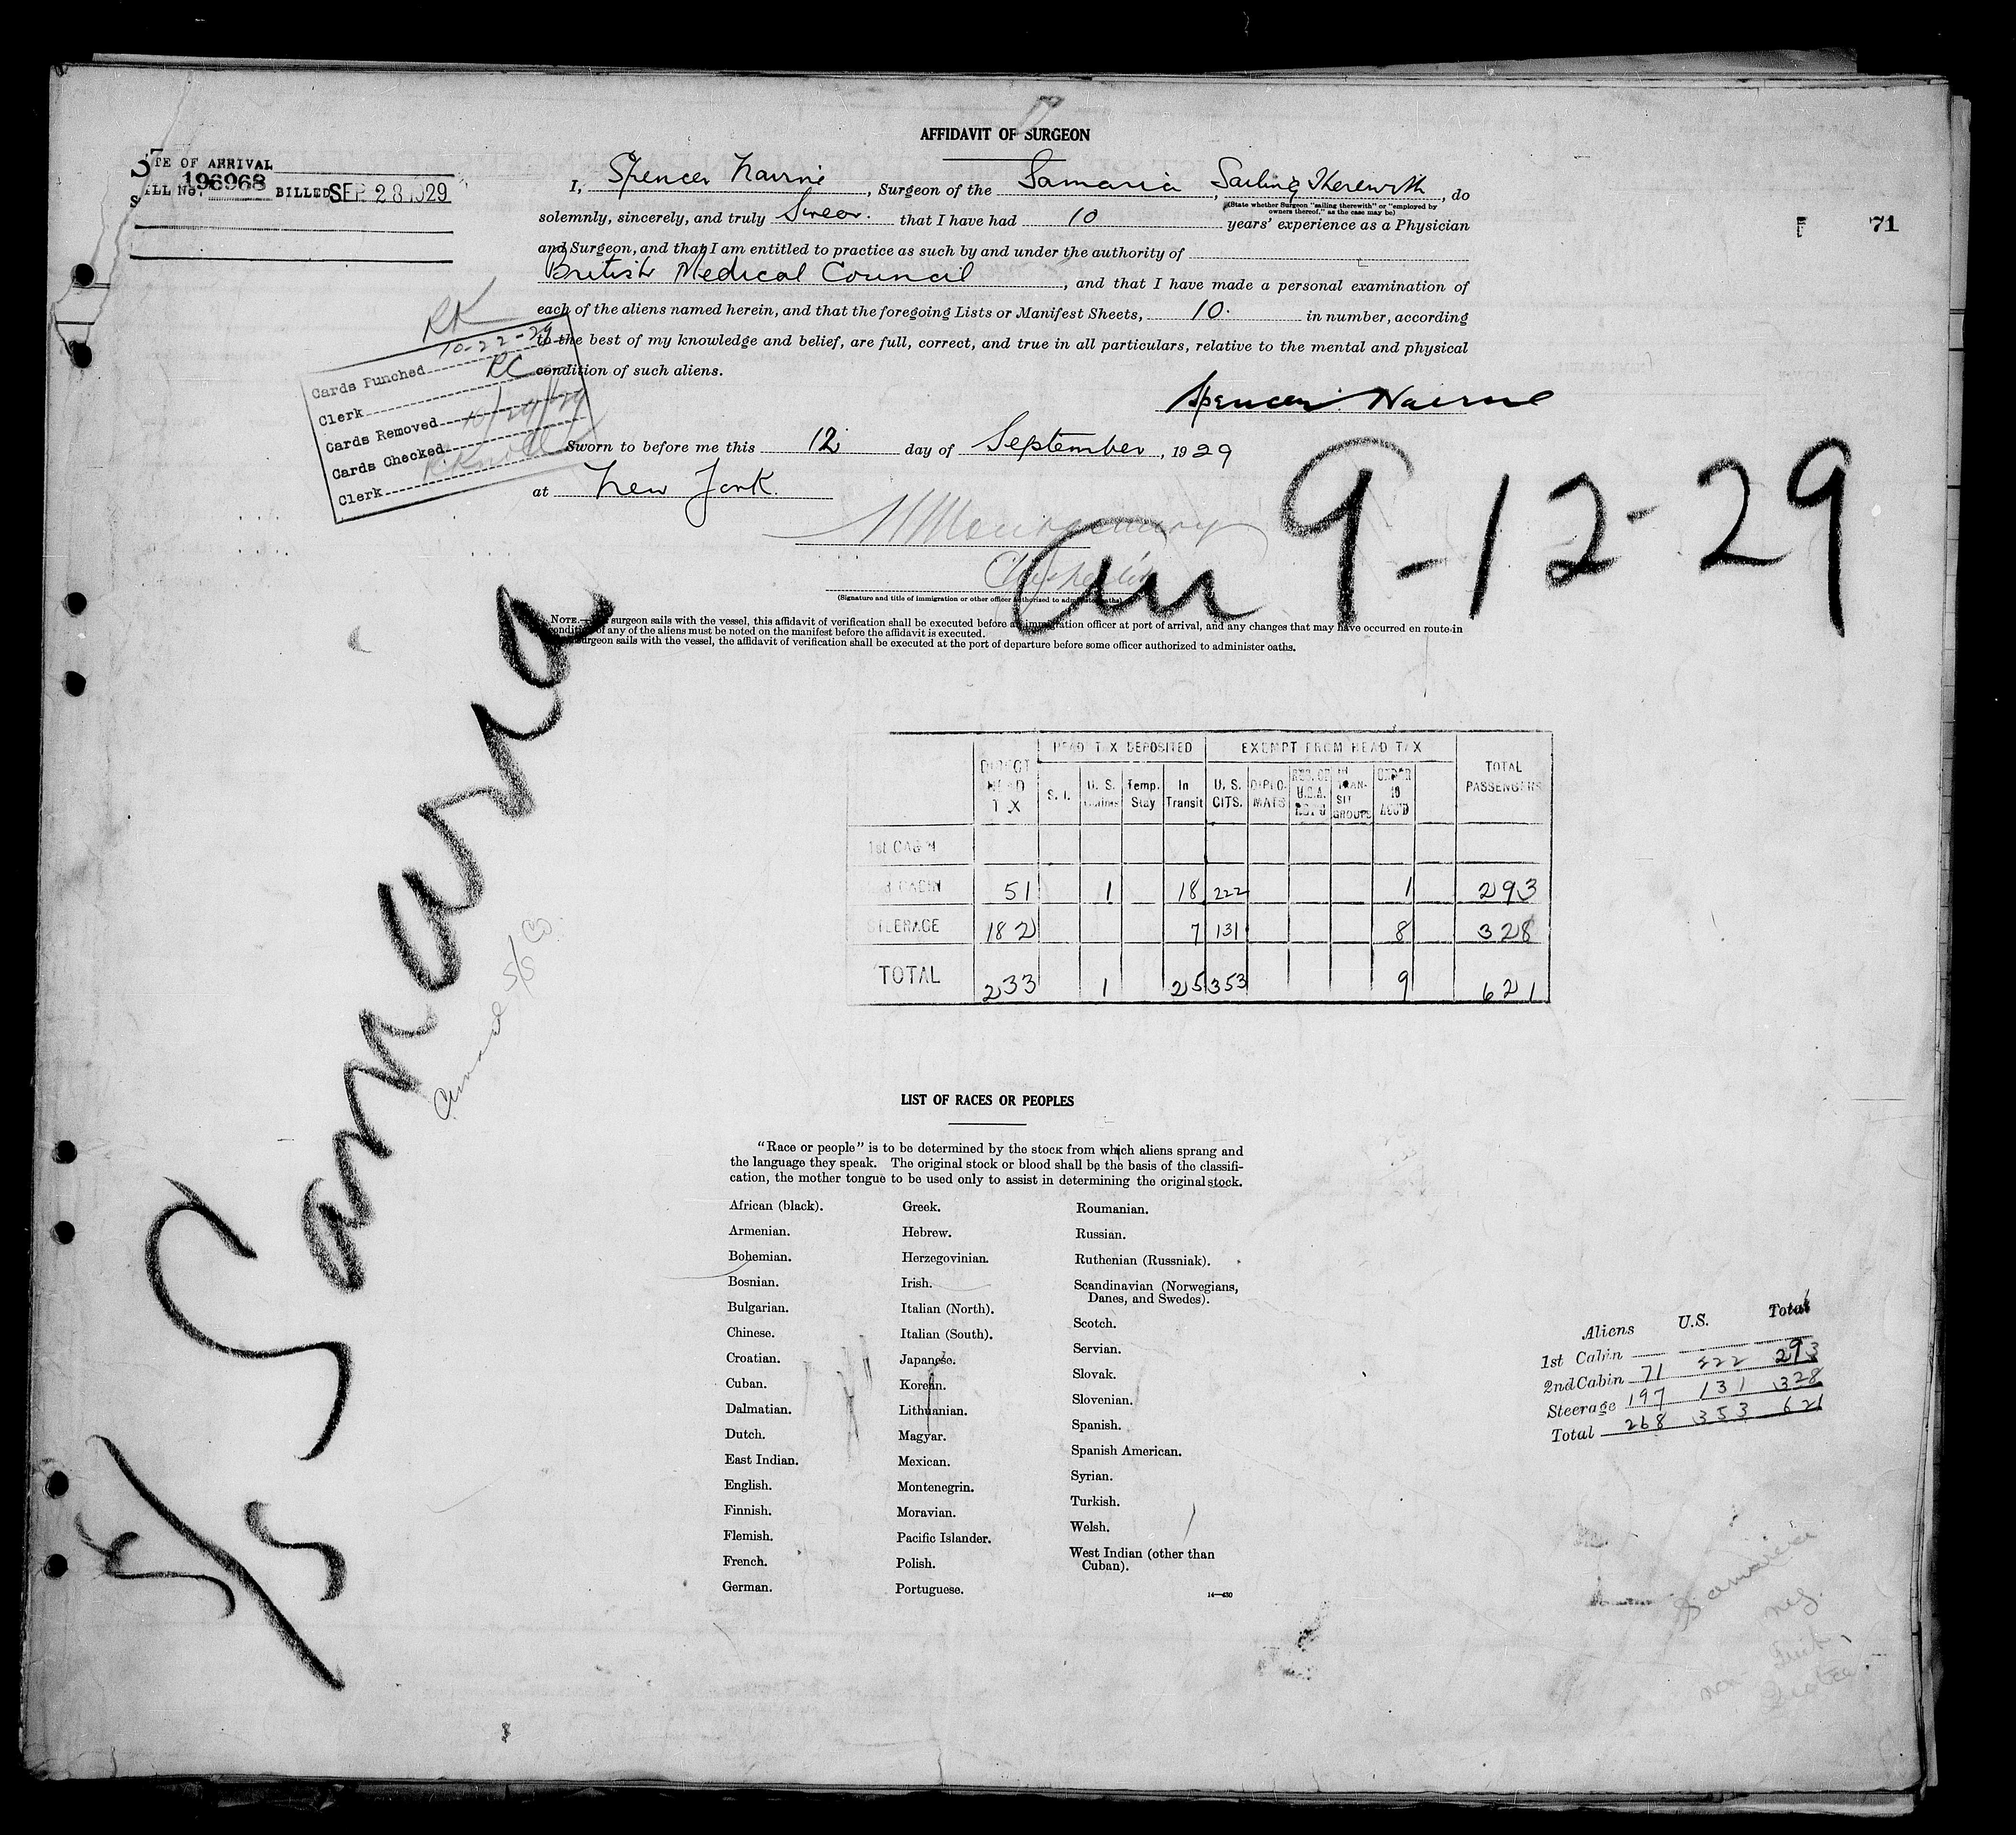 AFFIDAVIT OF SURGEON
TE OF ARRIVAL
ILL No. 196968 BILLED SEP 28 1929
I, Spencer Nairne, Surgeon of the Samaria, Sailing Therewith, do
(State whether Surgeon "sailing therewith" or "employed by
owners thereof," as the case may be)
solemnly, sincerely, and truly Swear. that I have had 10 years' experience as a Physician
and Surgeon, and that I am entitled to practice as such by and under the authority of
British Medical Council, and that I have made a personal examination of
each of the aliens named herein, and that the foregoing Lists or Manifest Sheets, 10. in number, according
to the best of my knowledge and belief, are full, correct, and true in all particulars, relative to the mental and physical
condition of such aliens.
F 71
RK
Cards Punched 10-22-29
Clerk RC
Cards Removed
Cards Checked
Clerk
Spencer Nairne
Sworn to before me this 12 day of September, 1929
at New York.
9-12-29
(Signature and title of immigration or other officer authorized to administer oaths)
NOTE.— surgeon sails with the vessel, this affidavit of verification shall be executed before an immigration officer at port of arrival, and any changes that may have occurred en route in
condition of any of the aliens must be noted on the manifest before the affidavit is executed.
surgeon sails with the vessel, the affidavit of verification shall be executed at the port of departure before some officer authorized to administer oaths.
S/S Samaria
Cunard S/S Co
HEAD TAX DEPOSITED EXEMPT FROM HEAD TAX
DIRECT HEAD TAX S. I. U. S. Claims Temp. Stay In Transit U. S. CITS. DIPLO-MATS RES. OF U.S.A. RET'G IN TRAN-SIT GROUPS UNDER 16 ACC'D TOTAL PASSENGERS
1st CABIN
CABIN 51 1 18 222 1 293
STEERAGE 182 7 131 8 328
TOTAL 233 1 25 353 9 621
LIST OF RACES OR PEOPLES
"Race or people" is to be determined by the stock from which aliens sprang and
the language they speak. The original stock or blood shall be the basis of the classifi-
cation, the mother tongue to be used only to assist in determining the original stock.
African (black).
Armenian.
Bohemian.
Bosnian.
Bulgarian.
Chinese.
Croatian.
Cuban.
Dalmatian.
Dutch.
East Indian.
English.
Finnish.
Flemish.
French.
German.
Greek.
Hebrew.
Herzegovinian.
Irish.
Italian (North).
Italian (South).
Japanese.
Korean.
Lithuanian.
Magyar.
Mexican.
Montenegrin.
Moravian.
Pacific Islander.
Polish.
Portuguese.
Roumanian.
Russian.
Ruthenian (Russniak).
Scandinavian (Norwegians,
Danes, and Swedes).
Scotch.
Servian.
Slovak.
Slovenian.
Spanish.
Spanish American.
Syrian.
Turkish.
Welsh.
West Indian (other than
Cuban).
14—430
Aliens U.S. Total
1st Cabin
2nd Cabin 71 222 293
Steerage 197 131 328
Total 268 353 621
Samaria